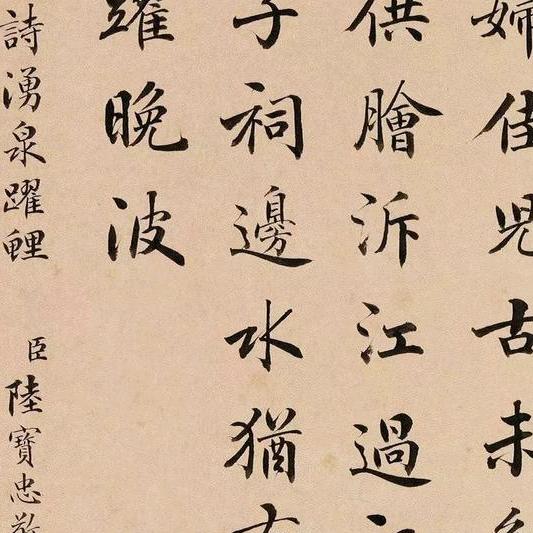 婦佳兒古未
供膾泝江過
子祠邊水猶
躍晚波
詩湧泉躍鯉
臣陸寶忠敬